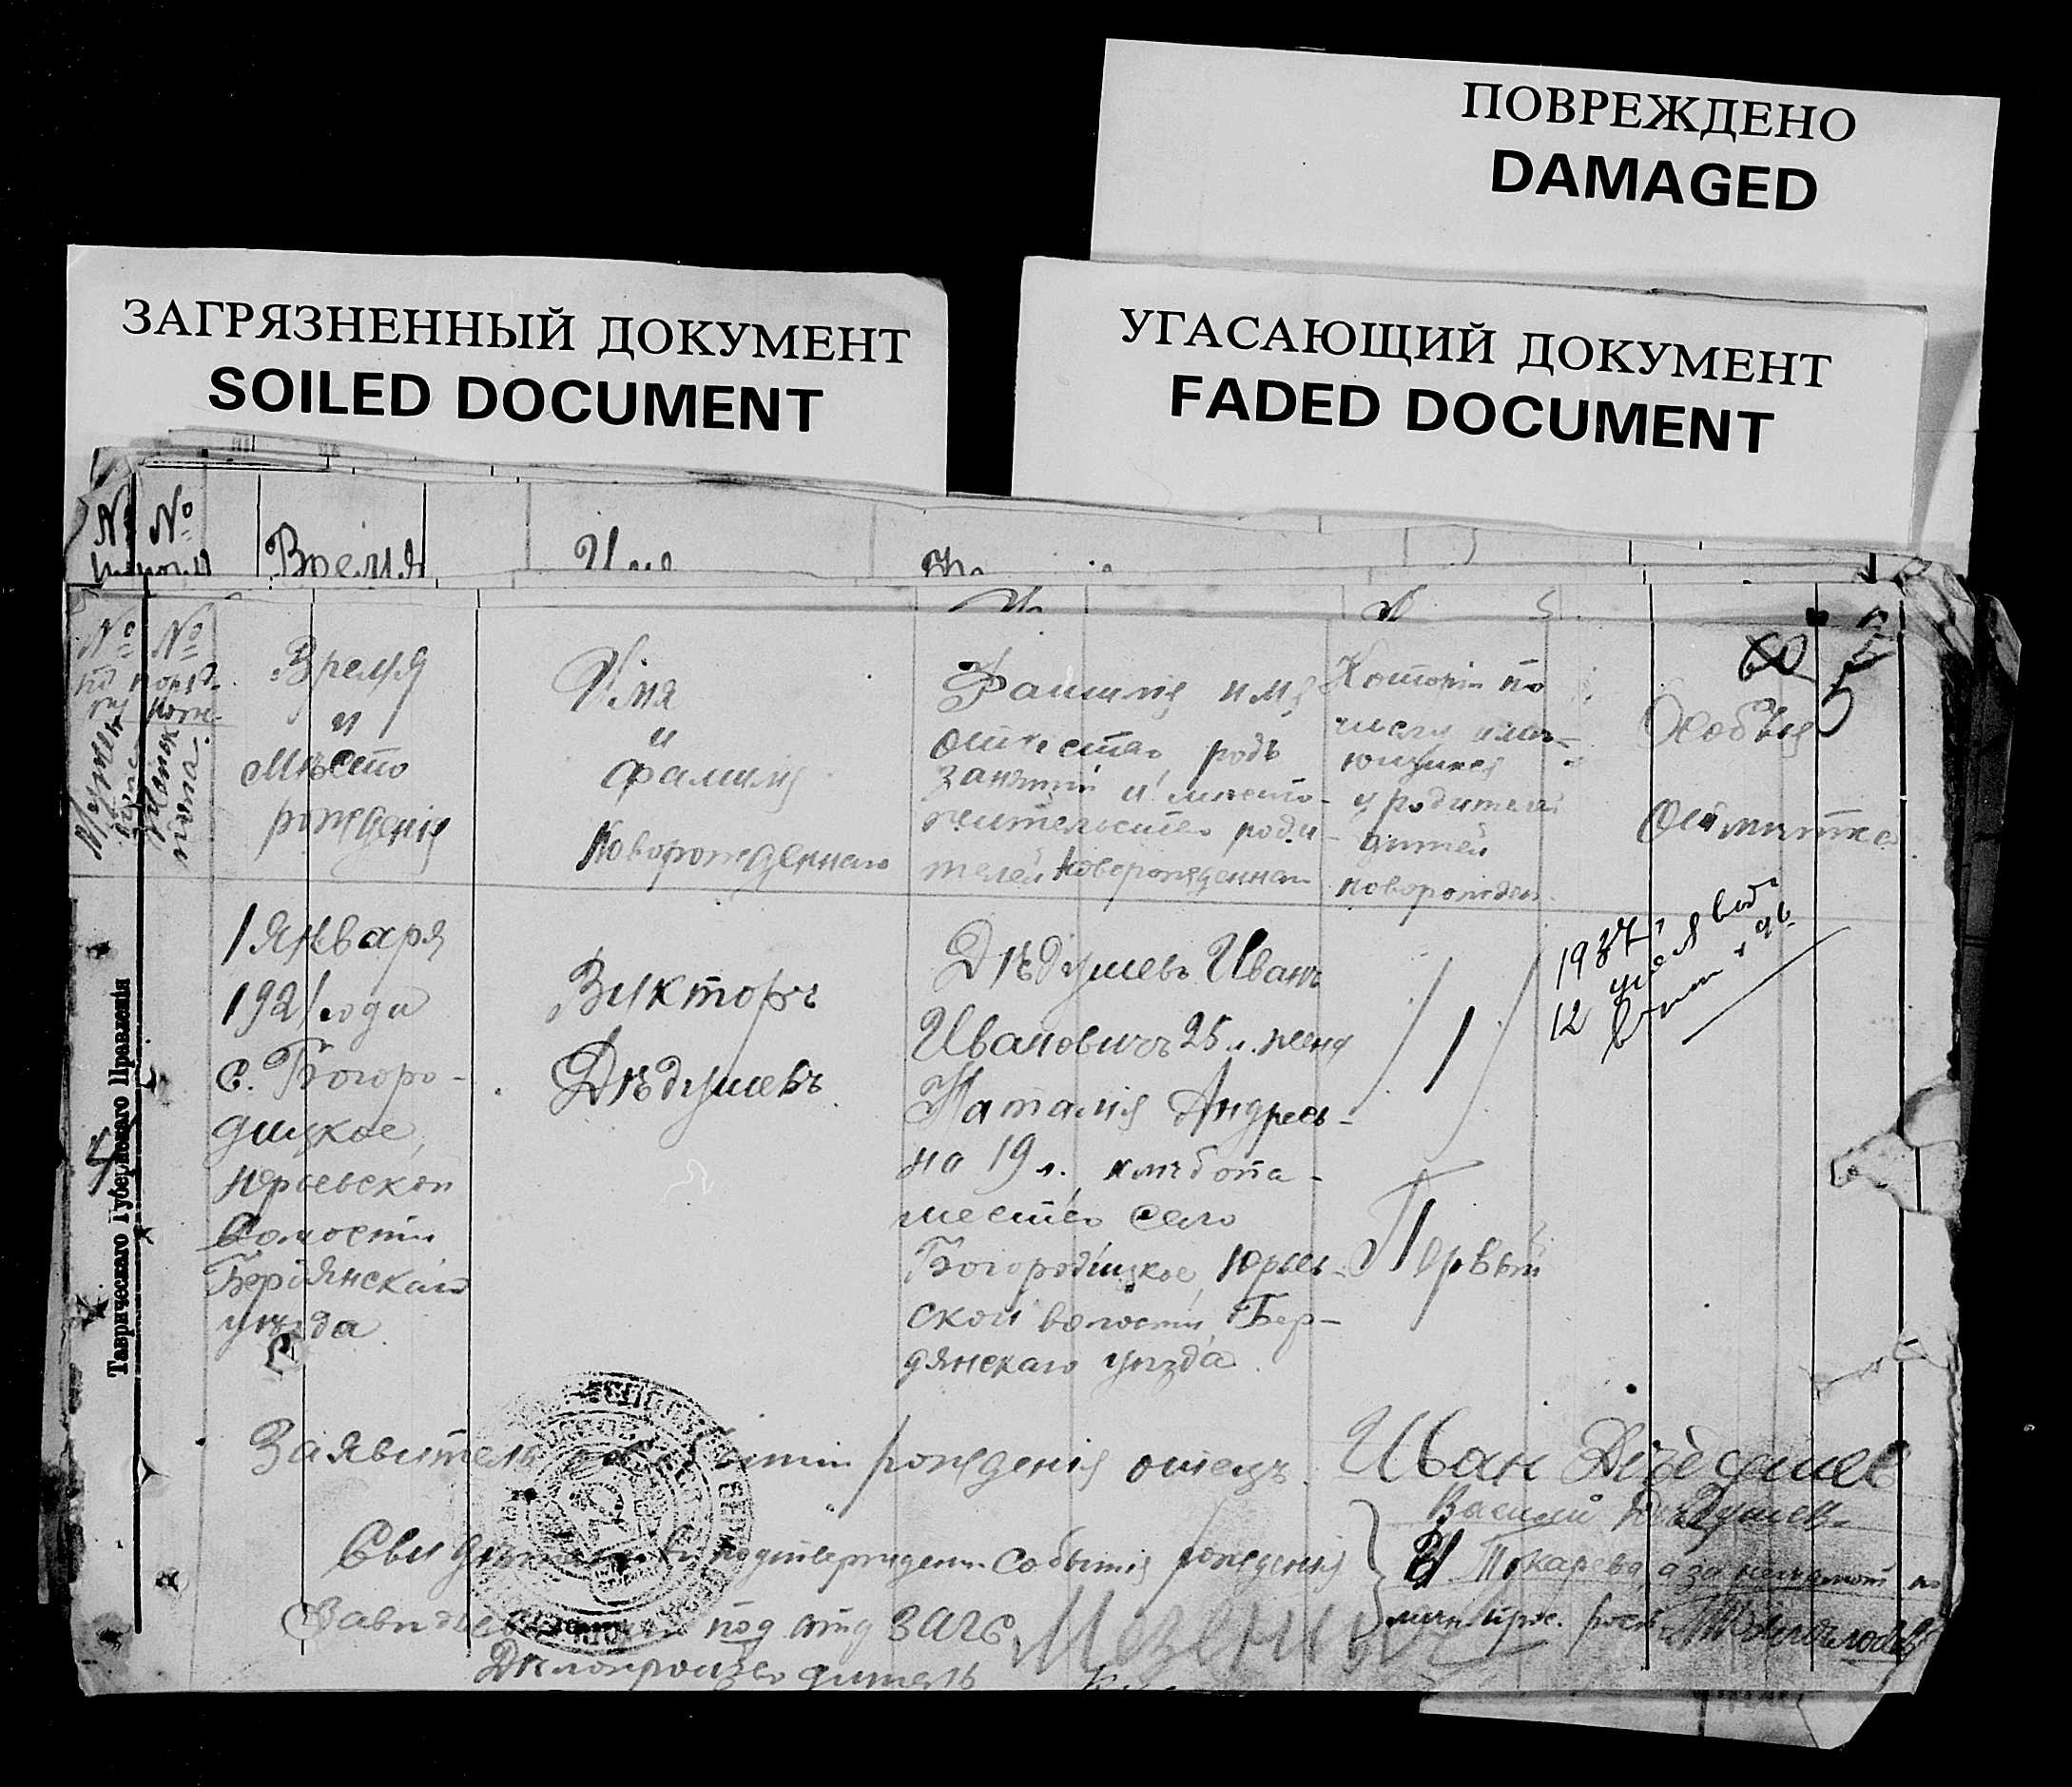 ПОВРЕЖДЕНО
DAMAGED
ЗАГРЯЗНЕННЫЙ ДОКУМЕНТ
SOILED DOCUMENT
УГАСАЮЩИЙ ДОКУМЕНТ
FADED DOCUMENT
№ № Время
№ №
Время
и
Мѣсто
рожденія
Имя
и
фамилія
Новорожденнаго
Фамилія имя
отчество, родъ
занятій и место-
жительство роди-
телей новорожденнаго
Которій по
числу
у родителей
дитей
новорожден.
60
5
Особыя
Отмѣтка
4
1 Января
1921 года
с. Богоро-
дицкое,
Юрьевской
Волости
Бердянскаго
уѣзда
Викторъ
Дѣдушевъ
Дѣдушевъ Иванъ
Ивановичъ 25 л. жена
Наталія Андреев-
на 19 л., хлѣбопа-
шество село
Богородицкое, Юрьев-
ской волости, Бер-
дянскаго уѣзда.
1
Первый
1937
12
Таврическаго Губернскаго Правленія
Заявитель рожденія отецъ Иван Дѣдушев
Василий Дѣдушев
подтвержден. событія рожденія
Токарева, а за
под отд ЗАГС
Дѣлопроизводитель